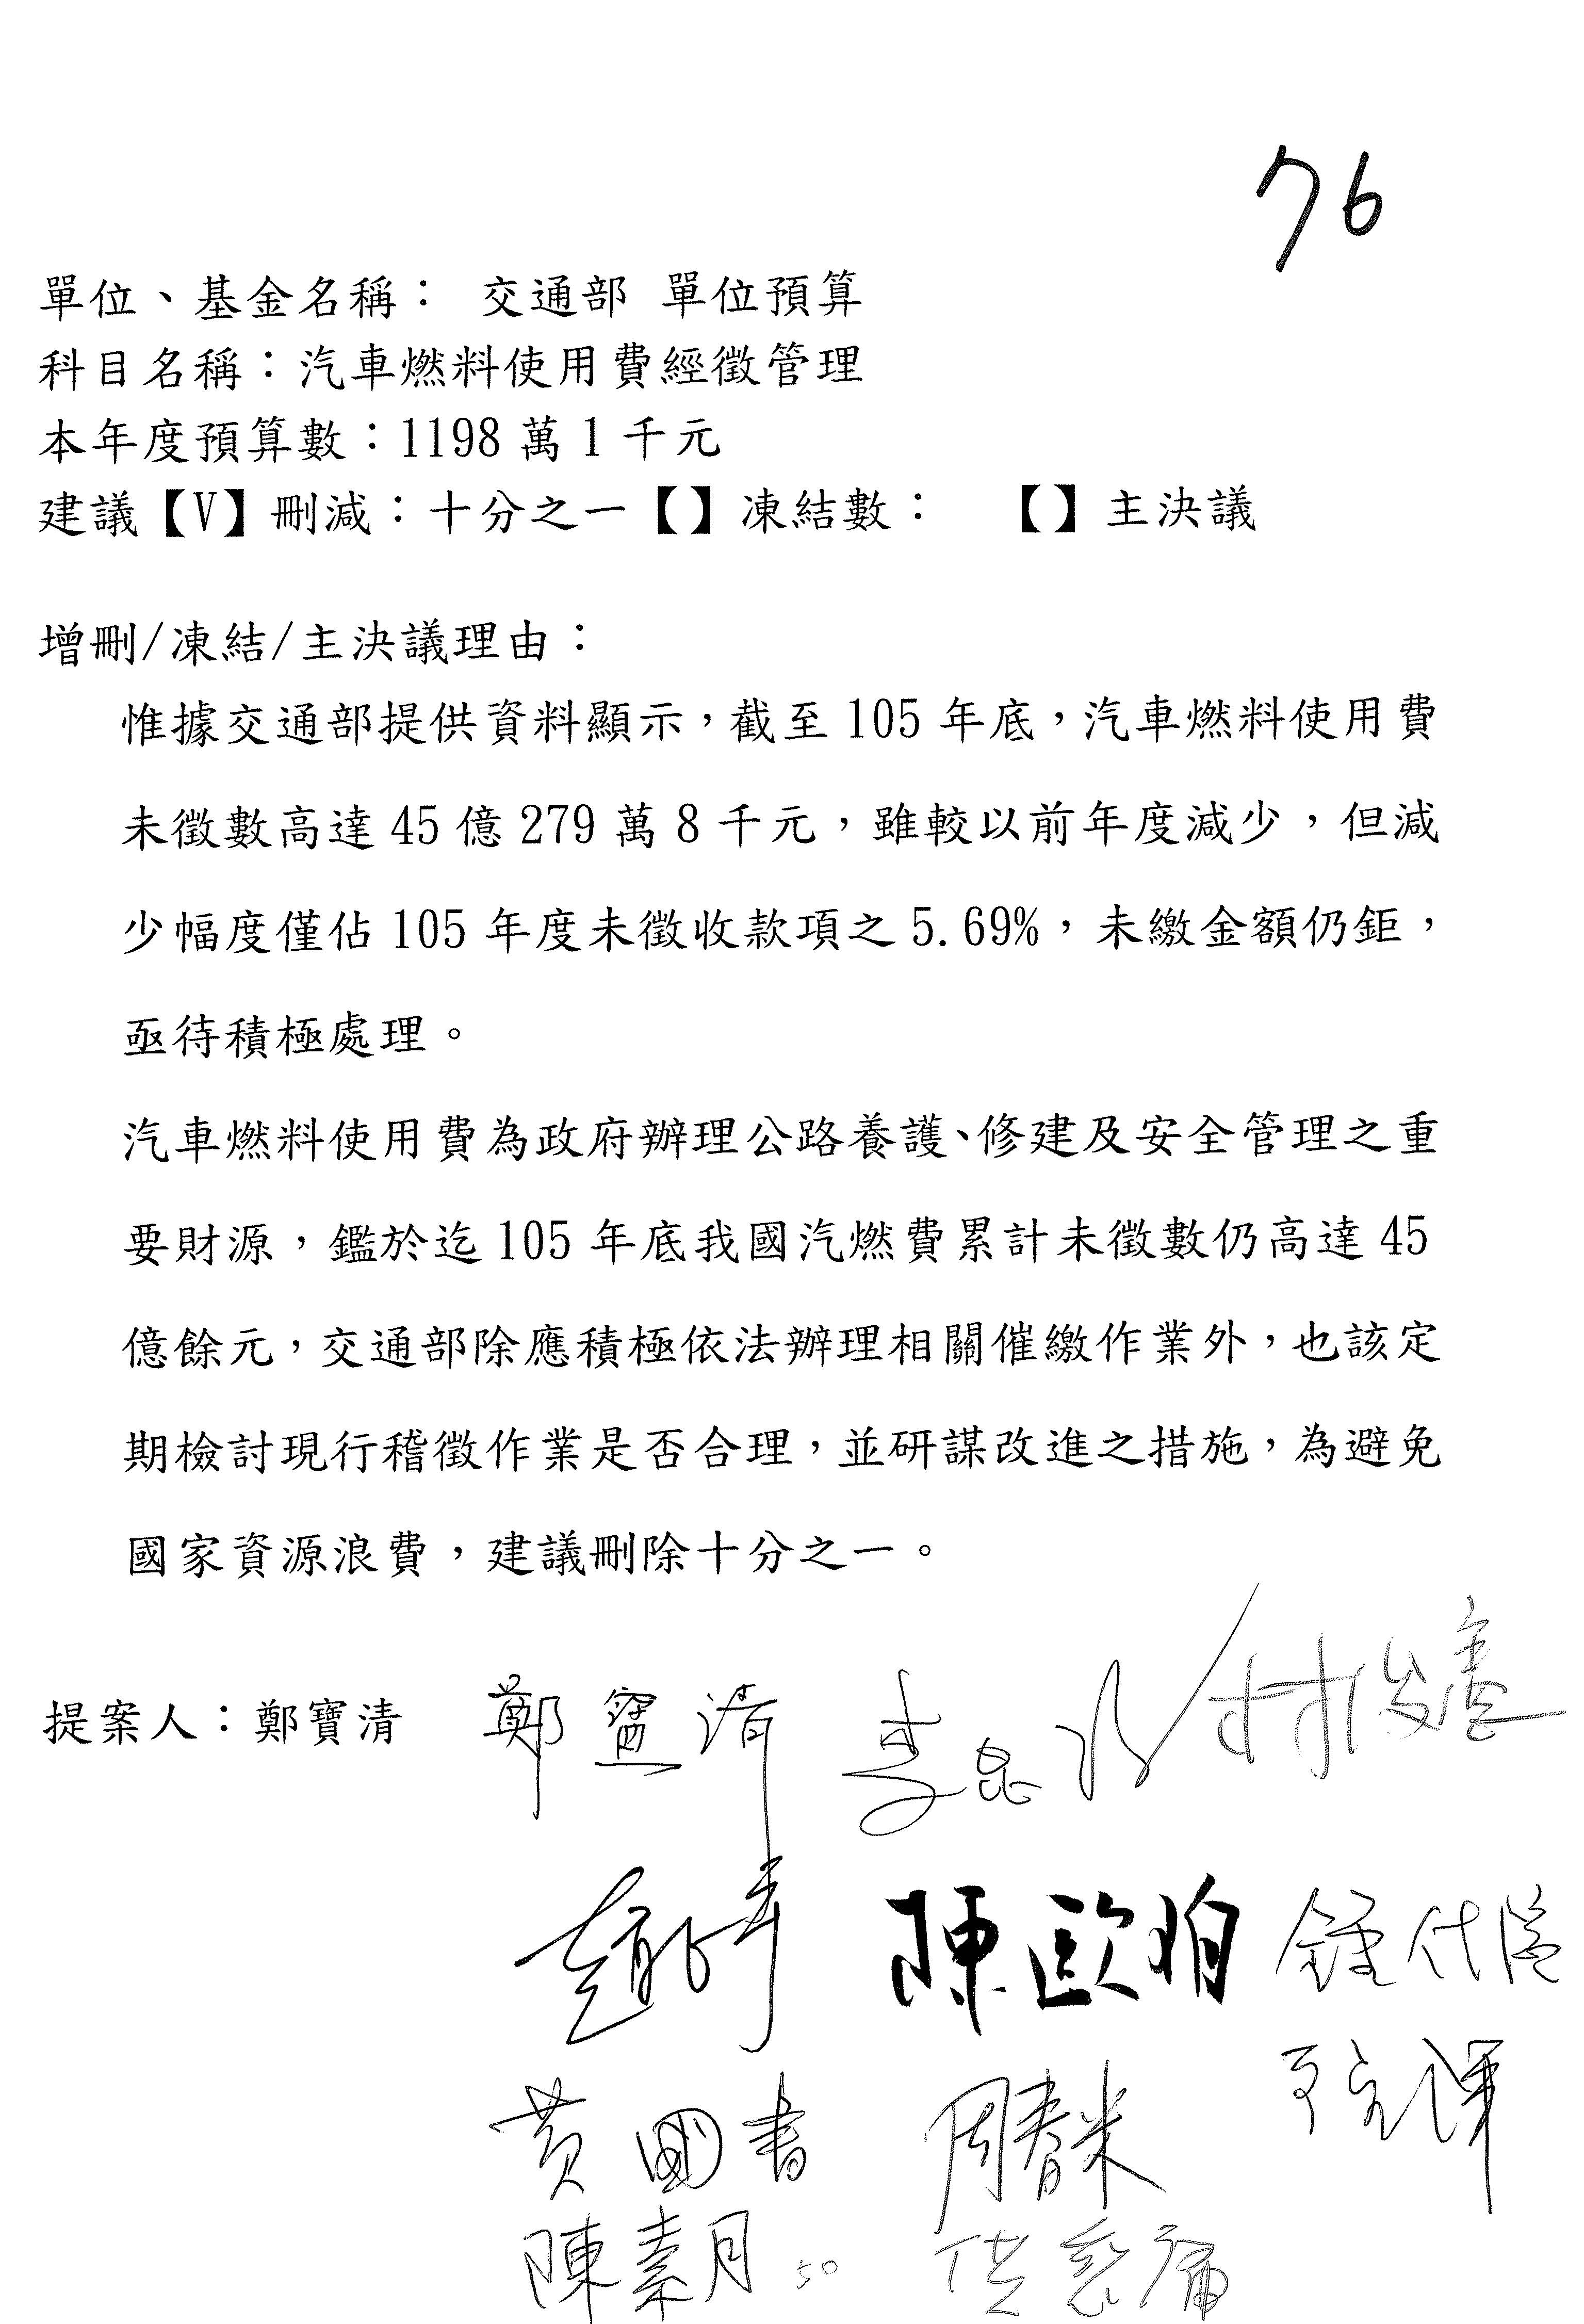 76
單位、基金名稱： 交通部 單位預算
科目名稱：汽車燃料使用費經徵管理
本年度預算數：1198 萬 1 千元
建議【V】刪減：十分之一【】凍結數： 【】主決議
增刪/凍結/主決議理由：
惟據交通部提供資料顯示，截至 105 年底，汽車燃料使用費
未徵數高達 45 億 279 萬 8 千元，雖較以前年度減少，但減
少幅度僅佔 105 年度未徵收款項之 5.69%，未繳金額仍鉅，
亟待積極處理。
汽車燃料使用費為政府辦理公路養護、修建及安全管理之重
要財源，鑑於迄 105 年底我國汽燃費累計未徵數仍高達 45
億餘元，交通部除應積極依法辦理相關催繳作業外，也該定
期檢討現行稽徵作業是否合理，並研謀改進之措施，為避免
國家資源浪費，建議刪除十分之一。
提案人：鄭寶清 鄭寶清 李昆 林俊憲
陳歐珀
黃國書 周春米
陳素月 50